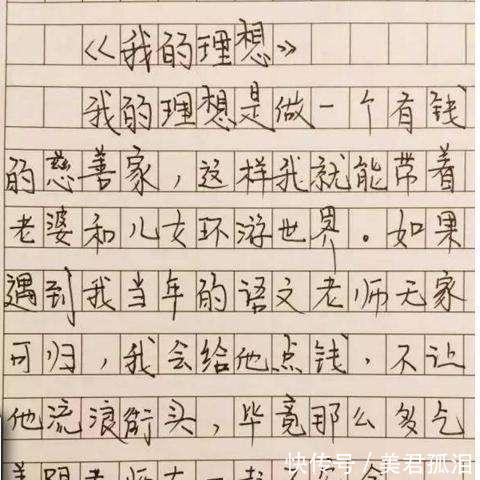 《我的理想》
我的理想是做一个有钱
的慈善家，这样我就能带着
老婆和儿女环游世界。如果
遇到我当年的语文老师无家
可归，我会给他点钱，不让
他流浪街头，毕竟那么多乞
快传号／美君孤泪